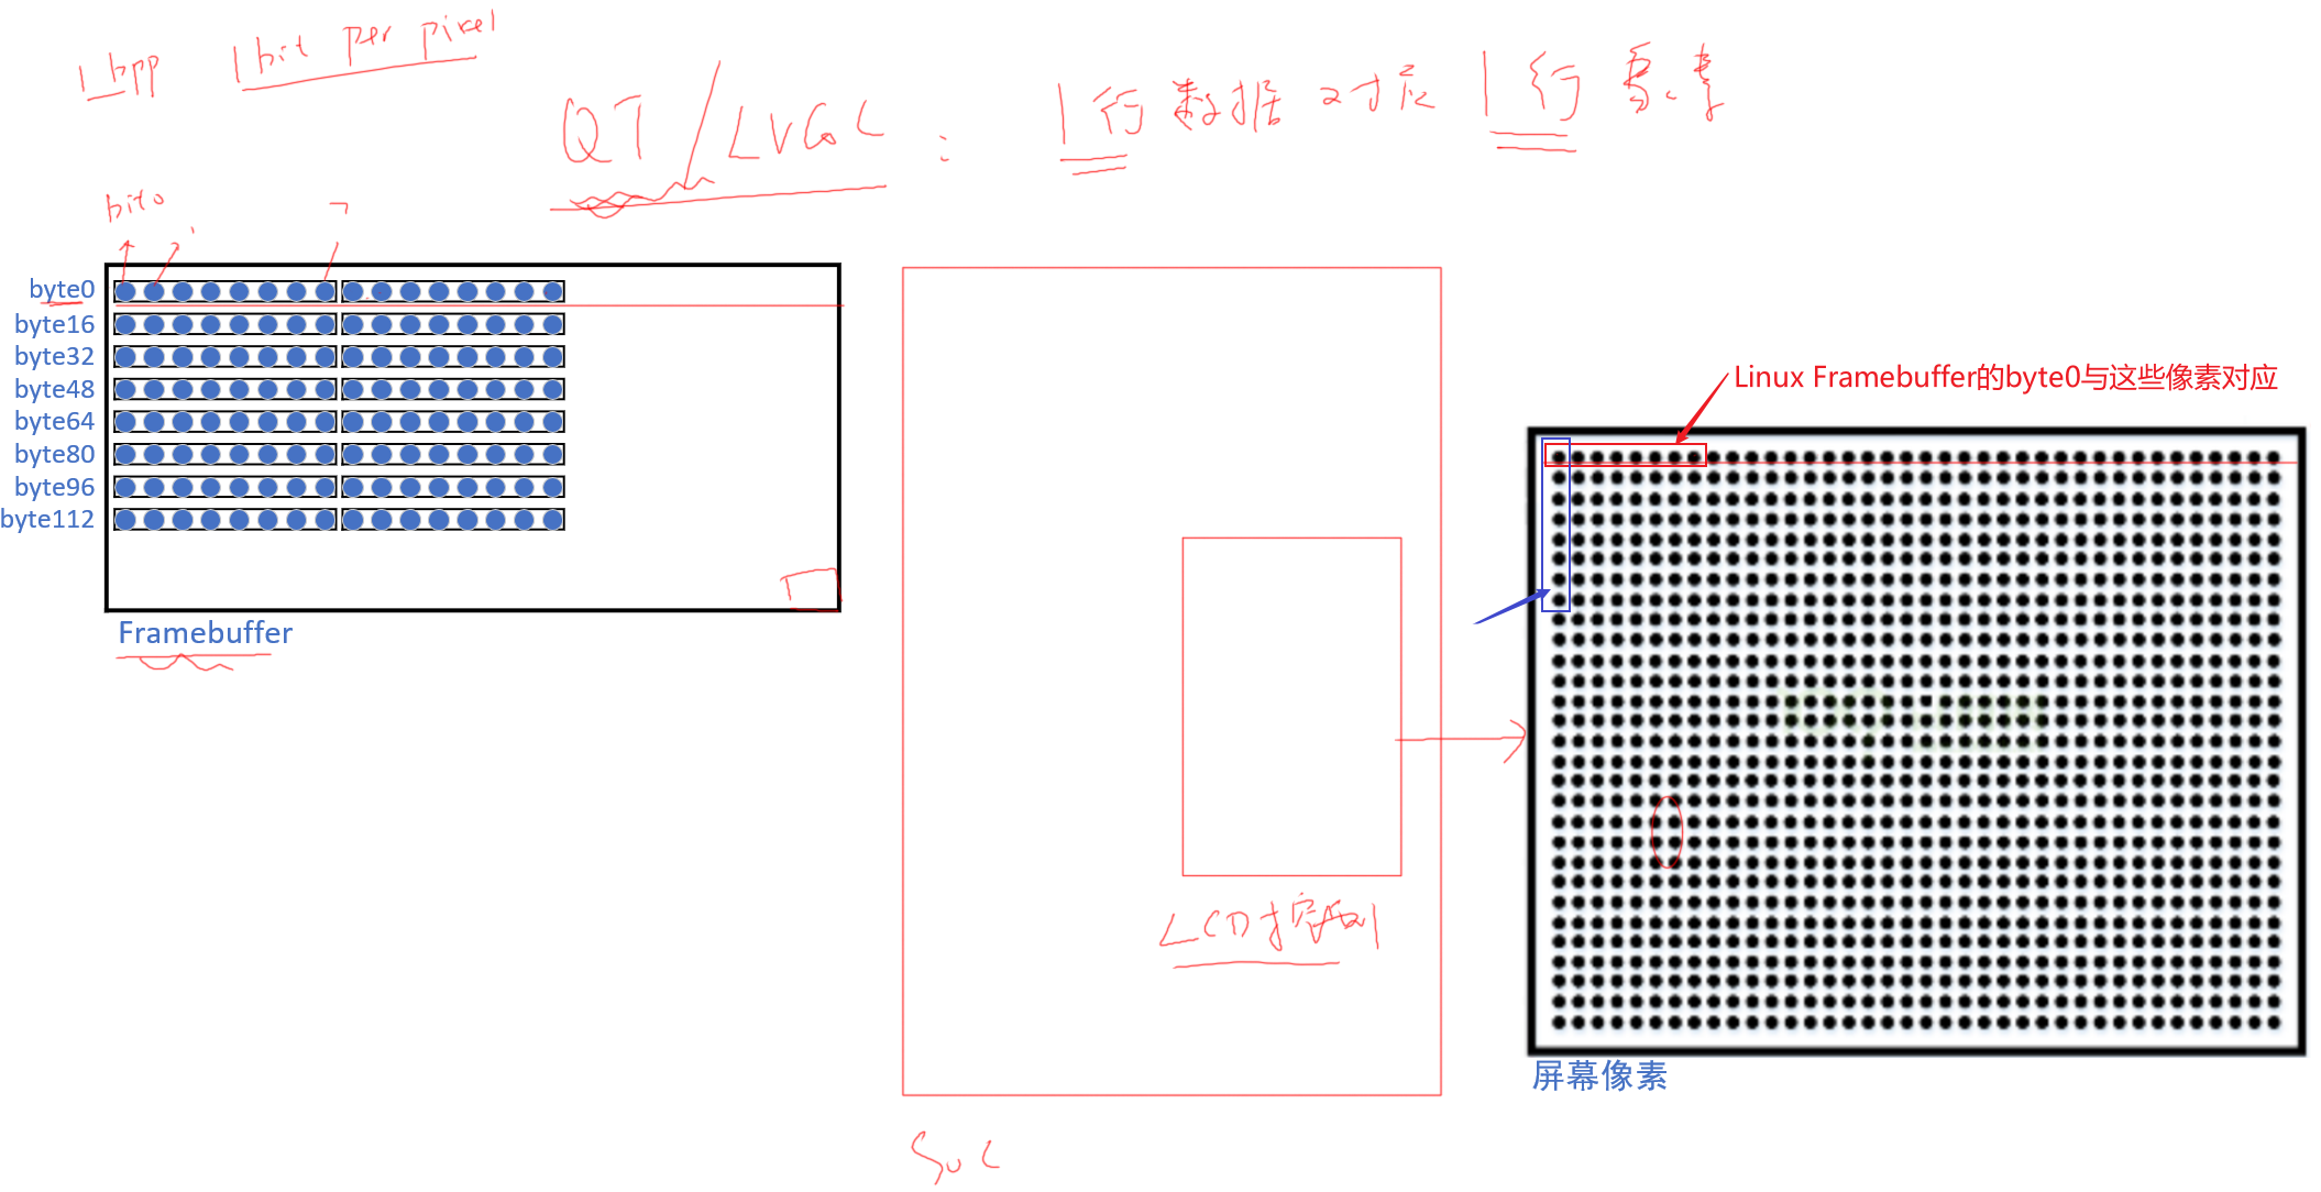 1bpp 1bit per pixel
QT/LVGL: 1行数据对应1行像素
bit0 1 7
byte0
byte16
byte32
byte48
byte64
byte80
byte96
byte112
Framebuffer
Linux Framebuffer的byte0与这些像素对应
LCD控制
屏幕像素
SoC